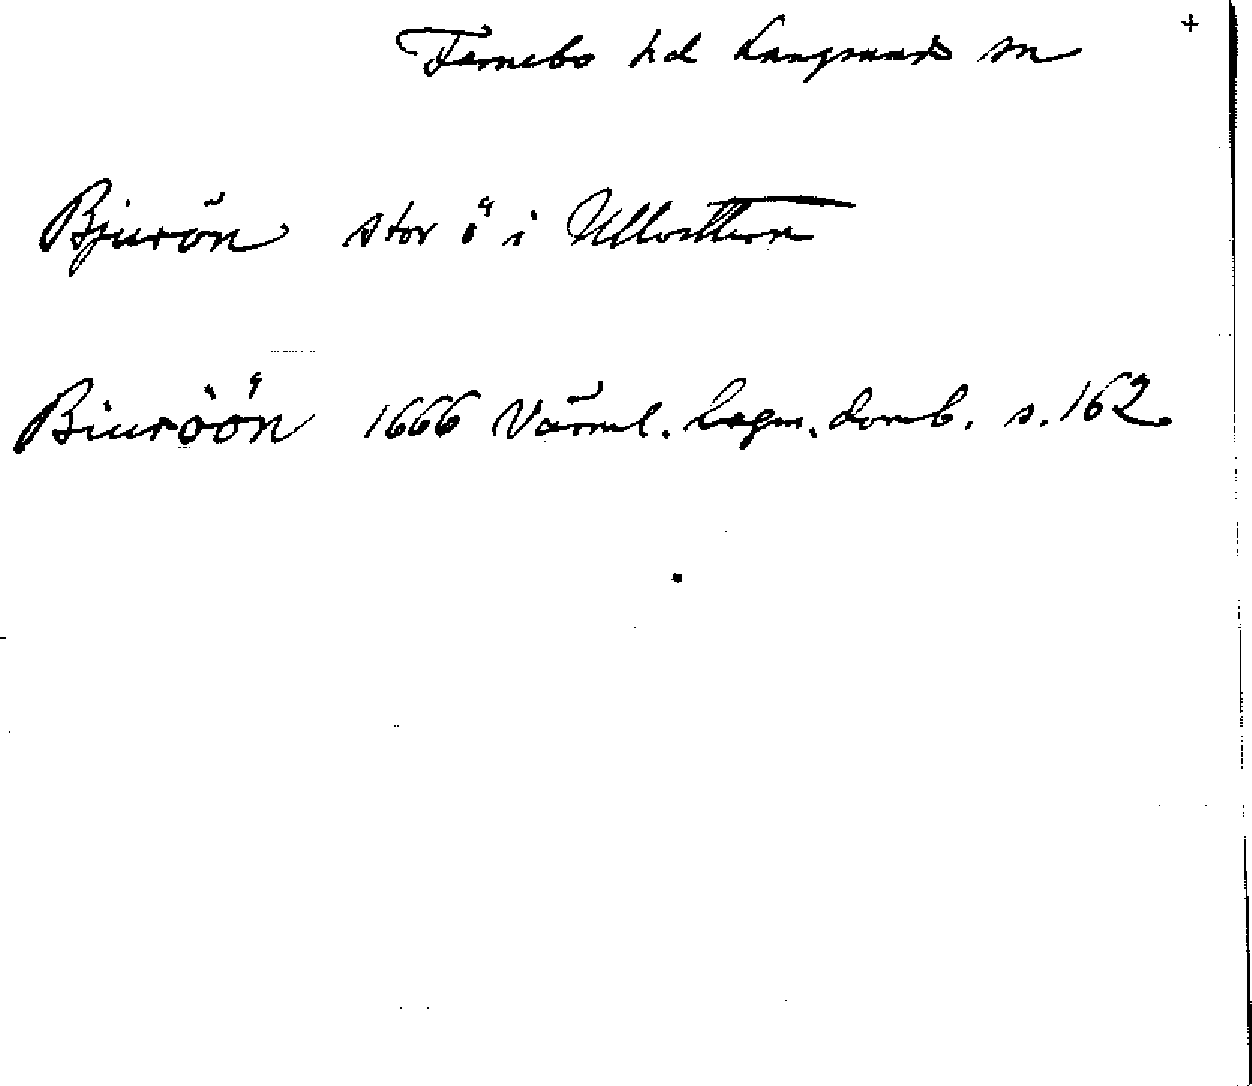 +
Färnebo hd Långbans sn
Bjurön stor ö i Ullvettern
Biuröön 1666 Värml. lagm. domb. s. 162